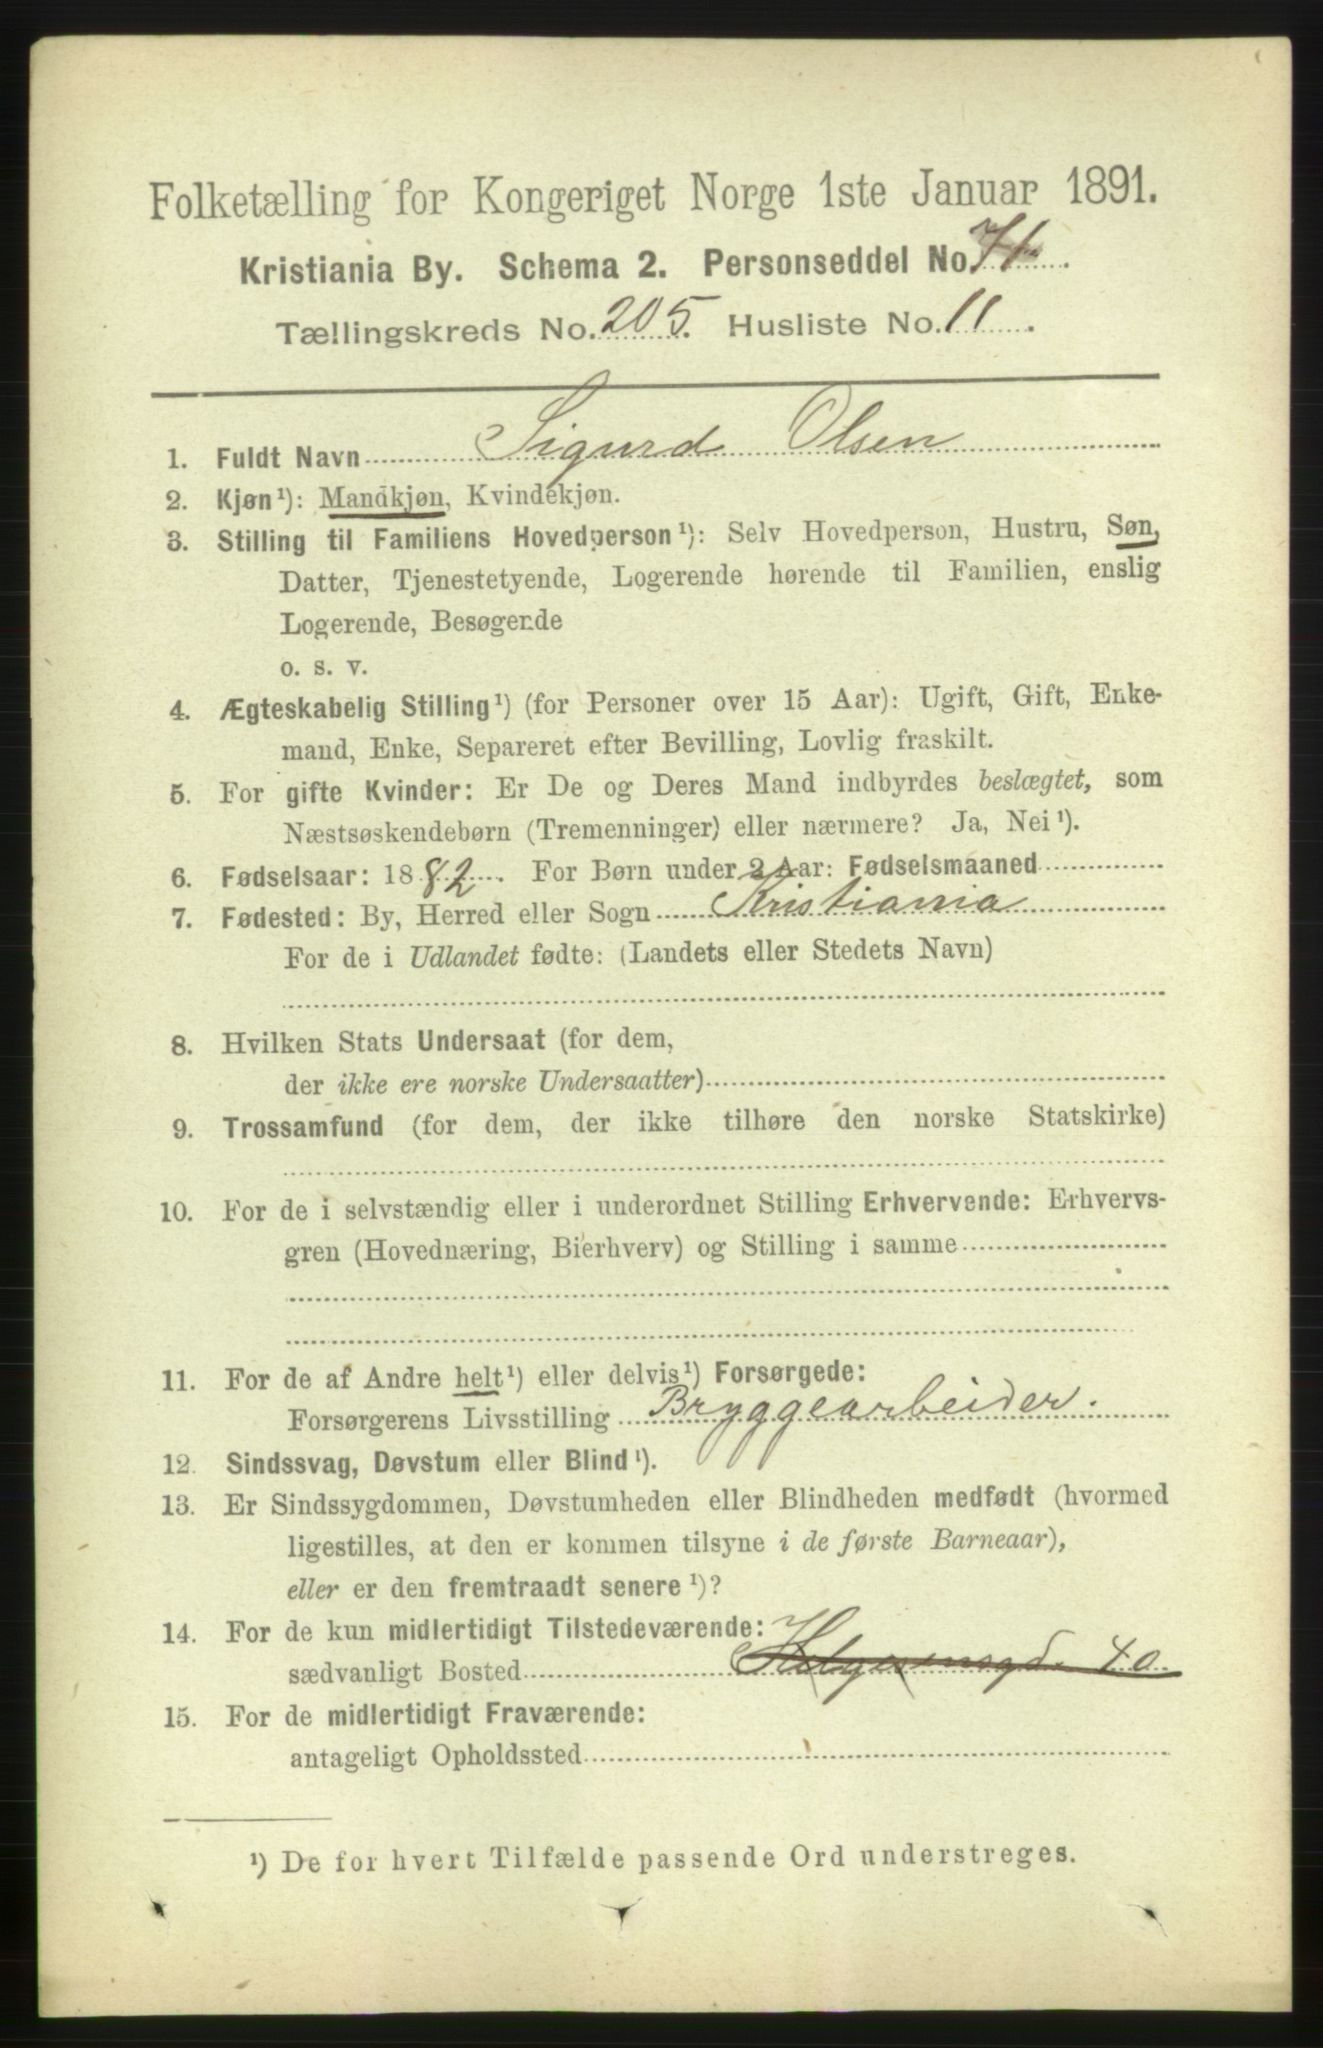 Folketælling for Kongeriget Norge 1ste Januar 1891.
Kristiania By. Schema 2. Personseddel No.
Tællingskreds No. 205. Husliste No. 11.
1. Fuldt Navn Sigurd Olsen
2. Kjøn¹): Mandkjøn, Kvindekjøn.
3. Stilling til Familiens Hovedperson¹): Selv Hovedperson, Hustru, Søn,
Datter, Tjenestetyende, Logerende hørende til Familien, enslig
Logerende, Besøgende
o. s. v.
4. Ægteskabelig Stilling¹) (for Personer over 15 Aar): Ugift, Gift, Enke-
mand, Enke, Separeret efter Bevilling, Lovlig fraskilt.
5. For gifte Kvinder: Er De og Deres Mand indbyrdes beslægtet, som
Næstsøskendebørn (Tremenninger) eller nærmere? Ja, Nei¹).
6. Fødselsaar: 1882. For Børn under 2 Aar: Fødselsmaaned
7. Fødested: By, Herred eller Sogn Kristiania
For de i Udlandet fødte: (Landets eller Stedets Navn)
8. Hvilken Stats Undersaat (for dem,
der ikke ere norske Undersaatter)
9. Trossamfund (for dem, der ikke tilhøre den norske Statskirke)
10. For de i selvstændig eller i underordnet Stilling Erhvervende: Erhvervs-
gren (Hovednæring, Bierhverv) og Stilling i samme
11. For de af Andre helt¹) eller delvis¹) Forsørgede:
Forsørgerens Livsstilling Bryggearbeider.
12. Sindssvag, Døvstum eller Blind¹).
13. Er Sindssygdommen, Døvstumheden eller Blindheden medfødt (hvormed
ligestilles, at den er kommen tilsyne i de første Barneaar),
eller er den fremtraadt senere¹)?
14. For de kun midlertidigt Tilstedeværende:
sædvanligt Bosted Helgesensgd. 40
15. For de midlertidigt Fraværende:
antageligt Opholdssted
¹) De for hvert Tilfælde passende Ord understreges.